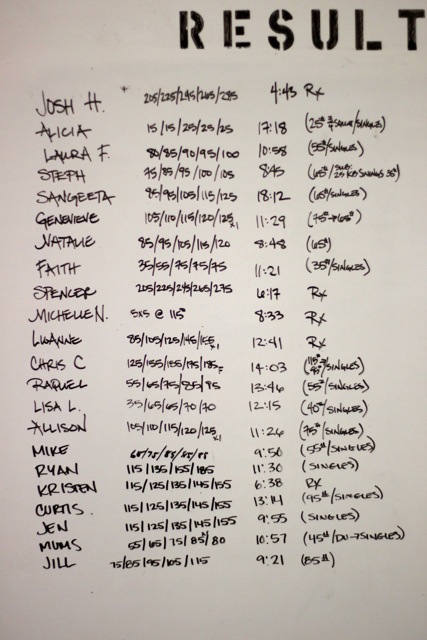 RESULT
JOSH H. * 205/225/245/265/285 4:43 Rx
ALICIA 15/15/25/25/25 17:18 (25# SINGLES)
LAURA F. 80/85/90/95/100 10:58 (55#/SINGLES)
STEPH 75/85/95/100/105 8:45 (65#/
SANGEETA 85/95/105/115/125 18:12 (65#/SINGLES)
GENEVIEVE 105/110/115/120/125x1 11:29 (75#→65#)
NATALIE 85/95/105/115/120 8:48 (65#)
FAITH 35/55/75/75/75 11:21 (35#/SINGLES)
SPENCER 205/225/245/265/275 6:17 Rx
MICHELLE N. 5x5 @ 115# 8:33 Rx
LUANNE 85/105/125/145/155x1 12:41 Rx
CHRIS C 125/155/155/175/185 14:03 (115#→95#/SINGLES)
RAQUEL 55/65/75/85/95 13:46 (55#/SINGLES)
LISA L. 35/65/65/70/70 12:15 (40#/SINGLES)
ALLISON 105/110/115/120/125x1 11:26 (75#/SINGLES)
MIKE 9:50 (55#/SINGLES)
RYAN 115/135/155/185 11:30 (SINGLES)
KRISTEN 115/125/135/145/155 6:38 Rx
CURTIS 115/125/135/145/155 13:14 (95#/SINGLES)
JEN 115/125/135/145/155 9:55 (SINGLES)
MUMS 55/65/75/85/80 10:57 (45#/DU→SINGLES)
JILL 75/85/95/105/115 9:21 (85#)